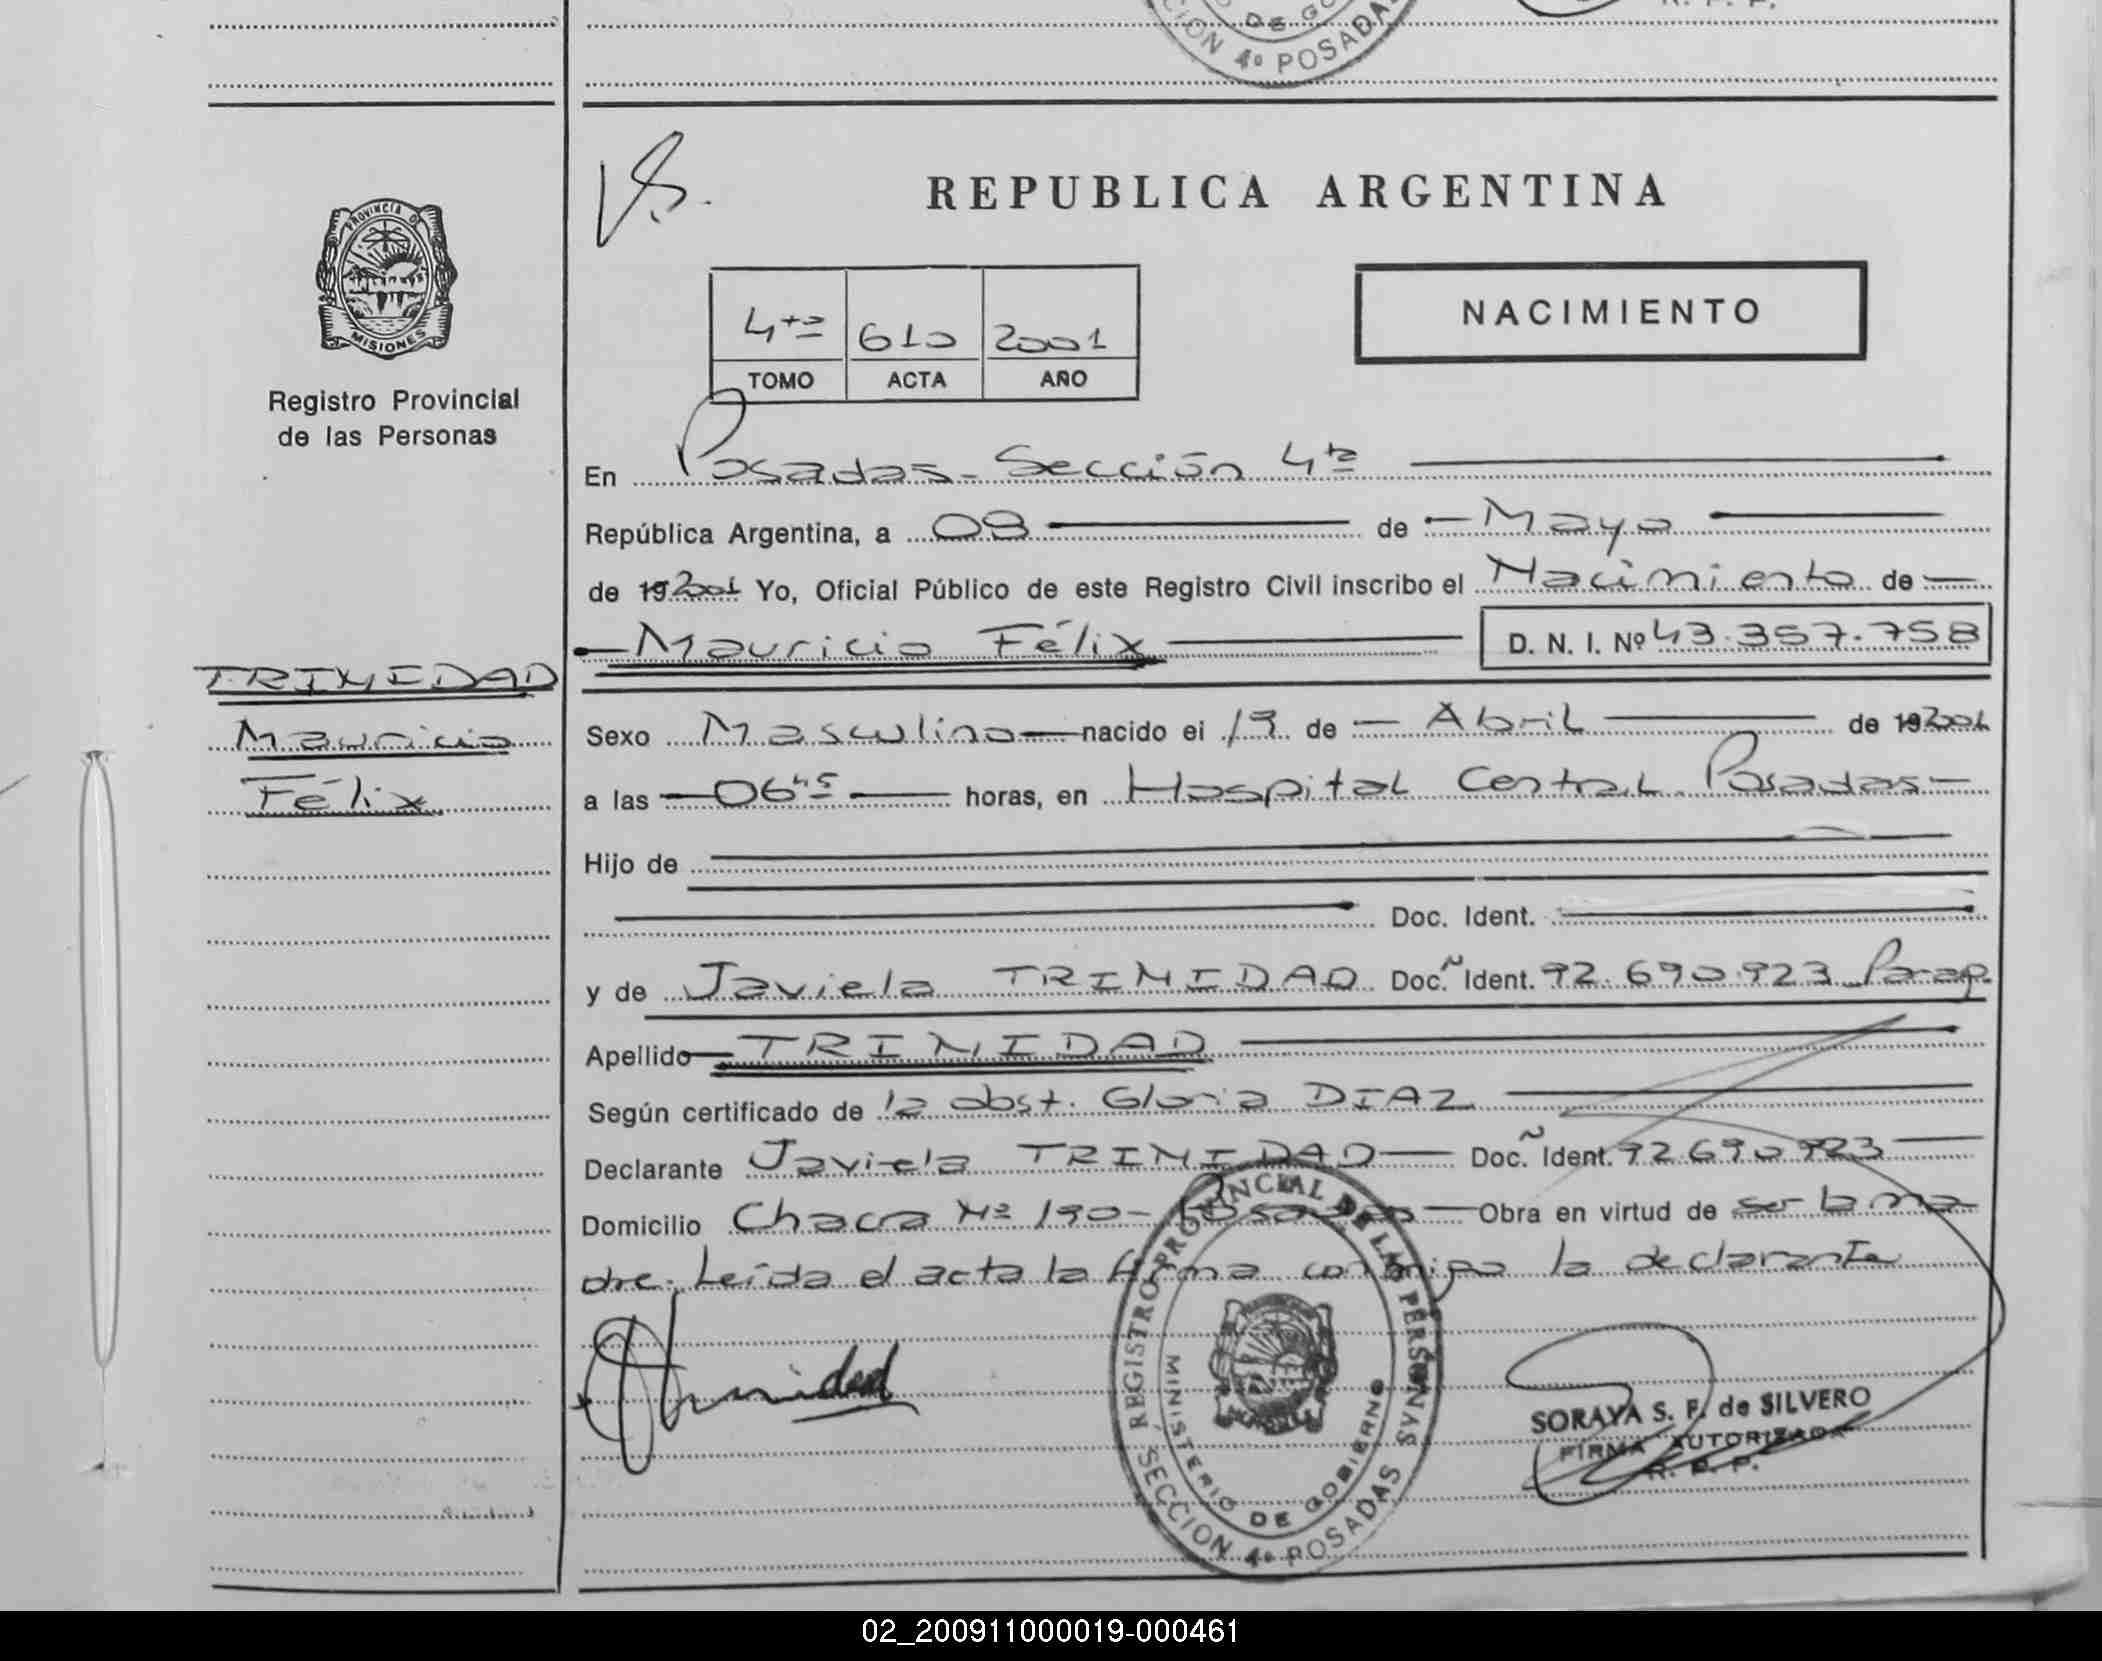 DE GO
CION 4º POSADAS
R. P. P.
PROVINCIA D
MISIONES
Registro Provincial
de las Personas
V.S.
REPUBLICA ARGENTINA
NACIMIENTO
4ta 610 2001
TOMO ACTA AÑO
En Posadas - Sección 4ta
República Argentina, a 08 de Mayo
de 19 2001 Yo, Oficial Público de este Registro Civil inscribo el Nacimiento de
Mauricio Félix D. N. I. Nº 43.357.758
TRINIDAD
Mauricio
Félix
Sexo Masculino nacido el 19 de Abril de 19 2001
a las 06 45 horas, en Hospital Central Posadas
Hijo de
Doc. Ident.
y de Javiela TRINIDAD Doc. Ident. 92.690.923 Parag.
Apellido TRINIDAD
Según certificado de la obst. Gloria DIAZ
Declarante Javiela TRINIDAD Doc. Ident. 92690923
Domicilio Chacra Nº 190 - Posadas Obra en virtud de ser la ma
dre. Leída el acta la firma conmigo la declarante
Trinidad
REGISTRO PROVINCIAL DE LAS PERSONAS
MINISTERIO DE GOBIERNO
SECCION 4º POSADAS
SORAYA S. F. de SILVERO
FIRMA AUTORIZADA
R. P. P.
02_200911000019-000461